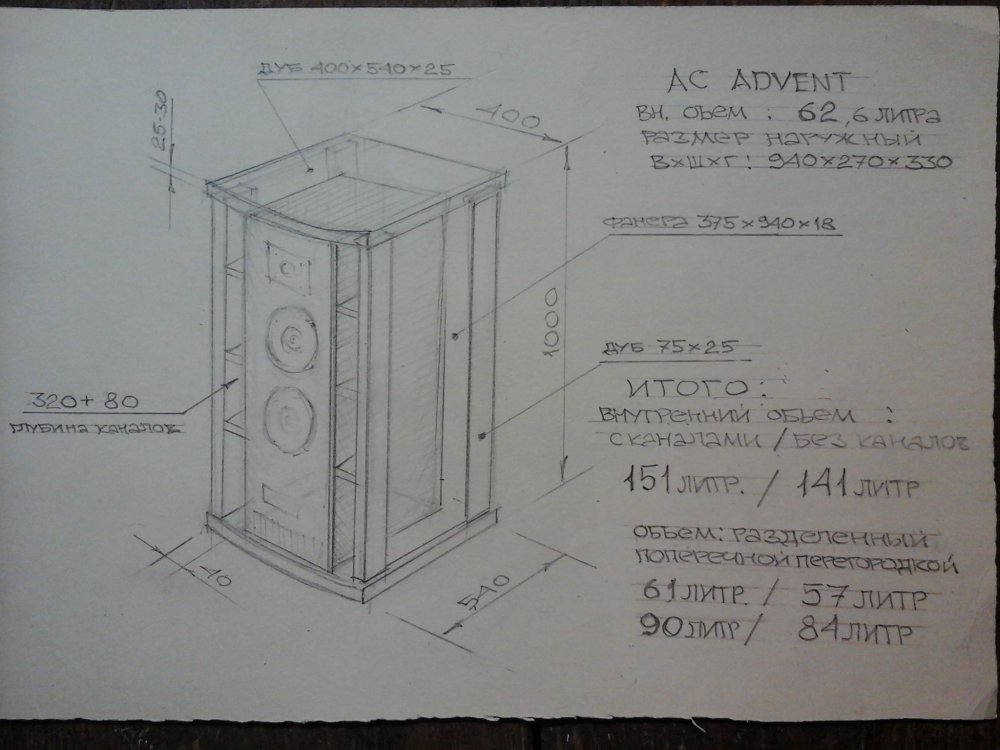 ДУБ 400×540×25
25-30
400
АС ADVENT
ВН. ОБЕМ : 62,6 ЛИТРА
РАЗМЕР НАРУЖНЫЙ
В×Ш×Г: 940×270×330
ФАНЕРА 375×940×18
1000
ДУБ 75×25
320+80
ГЛУБИНА КАНАЛОВ
ИТОГО:
ВНУТРЕННИЙ ОБЬЕМ :
С КАНАЛАМИ / БЕЗ КАНАЛОВ
151 ЛИТР. / 141 ЛИТР
ОБЬЕМ: РАЗДЕЛЕННЫЙ
ПОПЕРЕЧНОЙ ПЕРЕГОРОДКОЙ
61 ЛИТР. / 57 ЛИТР
90 ЛИТР / 84 ЛИТР
40
540